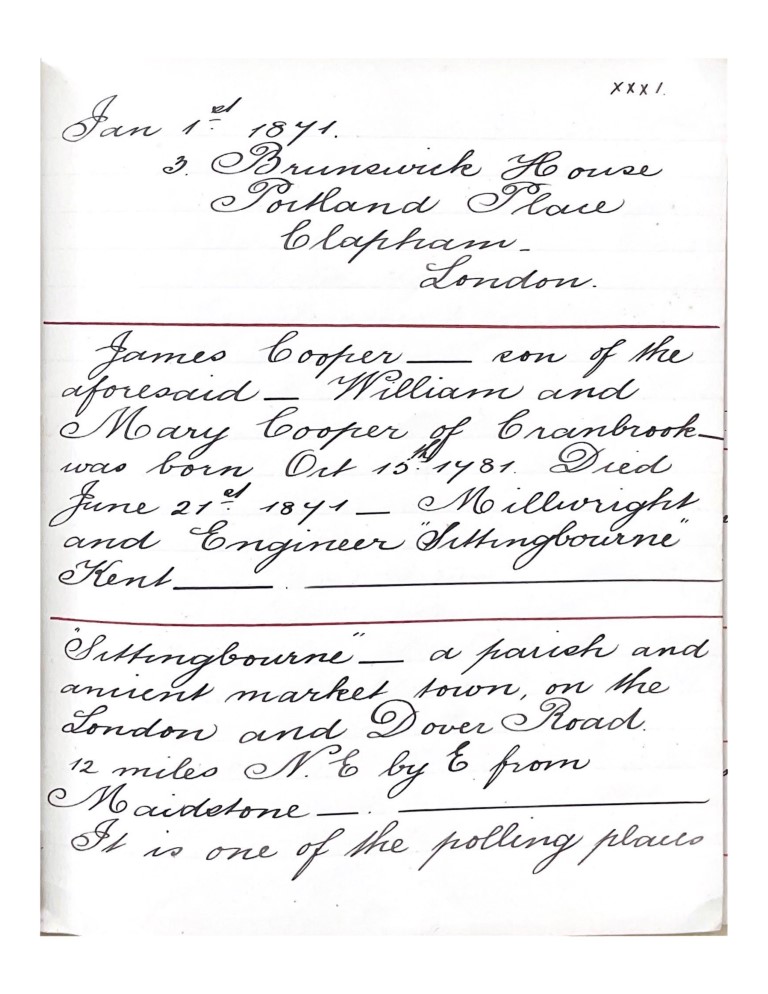 XXXI.
Jan 1st 1871.
3. Brunswick House
Portland Place
Clapham -
London.
James Cooper — son of the
aforesaid — William and
Mary Cooper of Cranbrook —
was born Oct 15th 1781. Died
June 21st 1871 — Millwright
and Engineer "Sittingbourne"
Kent — . —
"Sittingbourne" — a parish and
ancient market town, on the
London and Dover Road.
12 miles N. E by E from
Maidstone — . —
It is one of the polling places